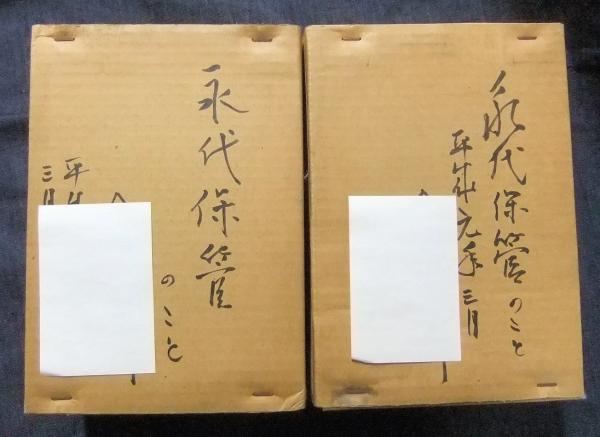 永代保管
のこと
平成
三月
永代保管のこと
平成元年三月